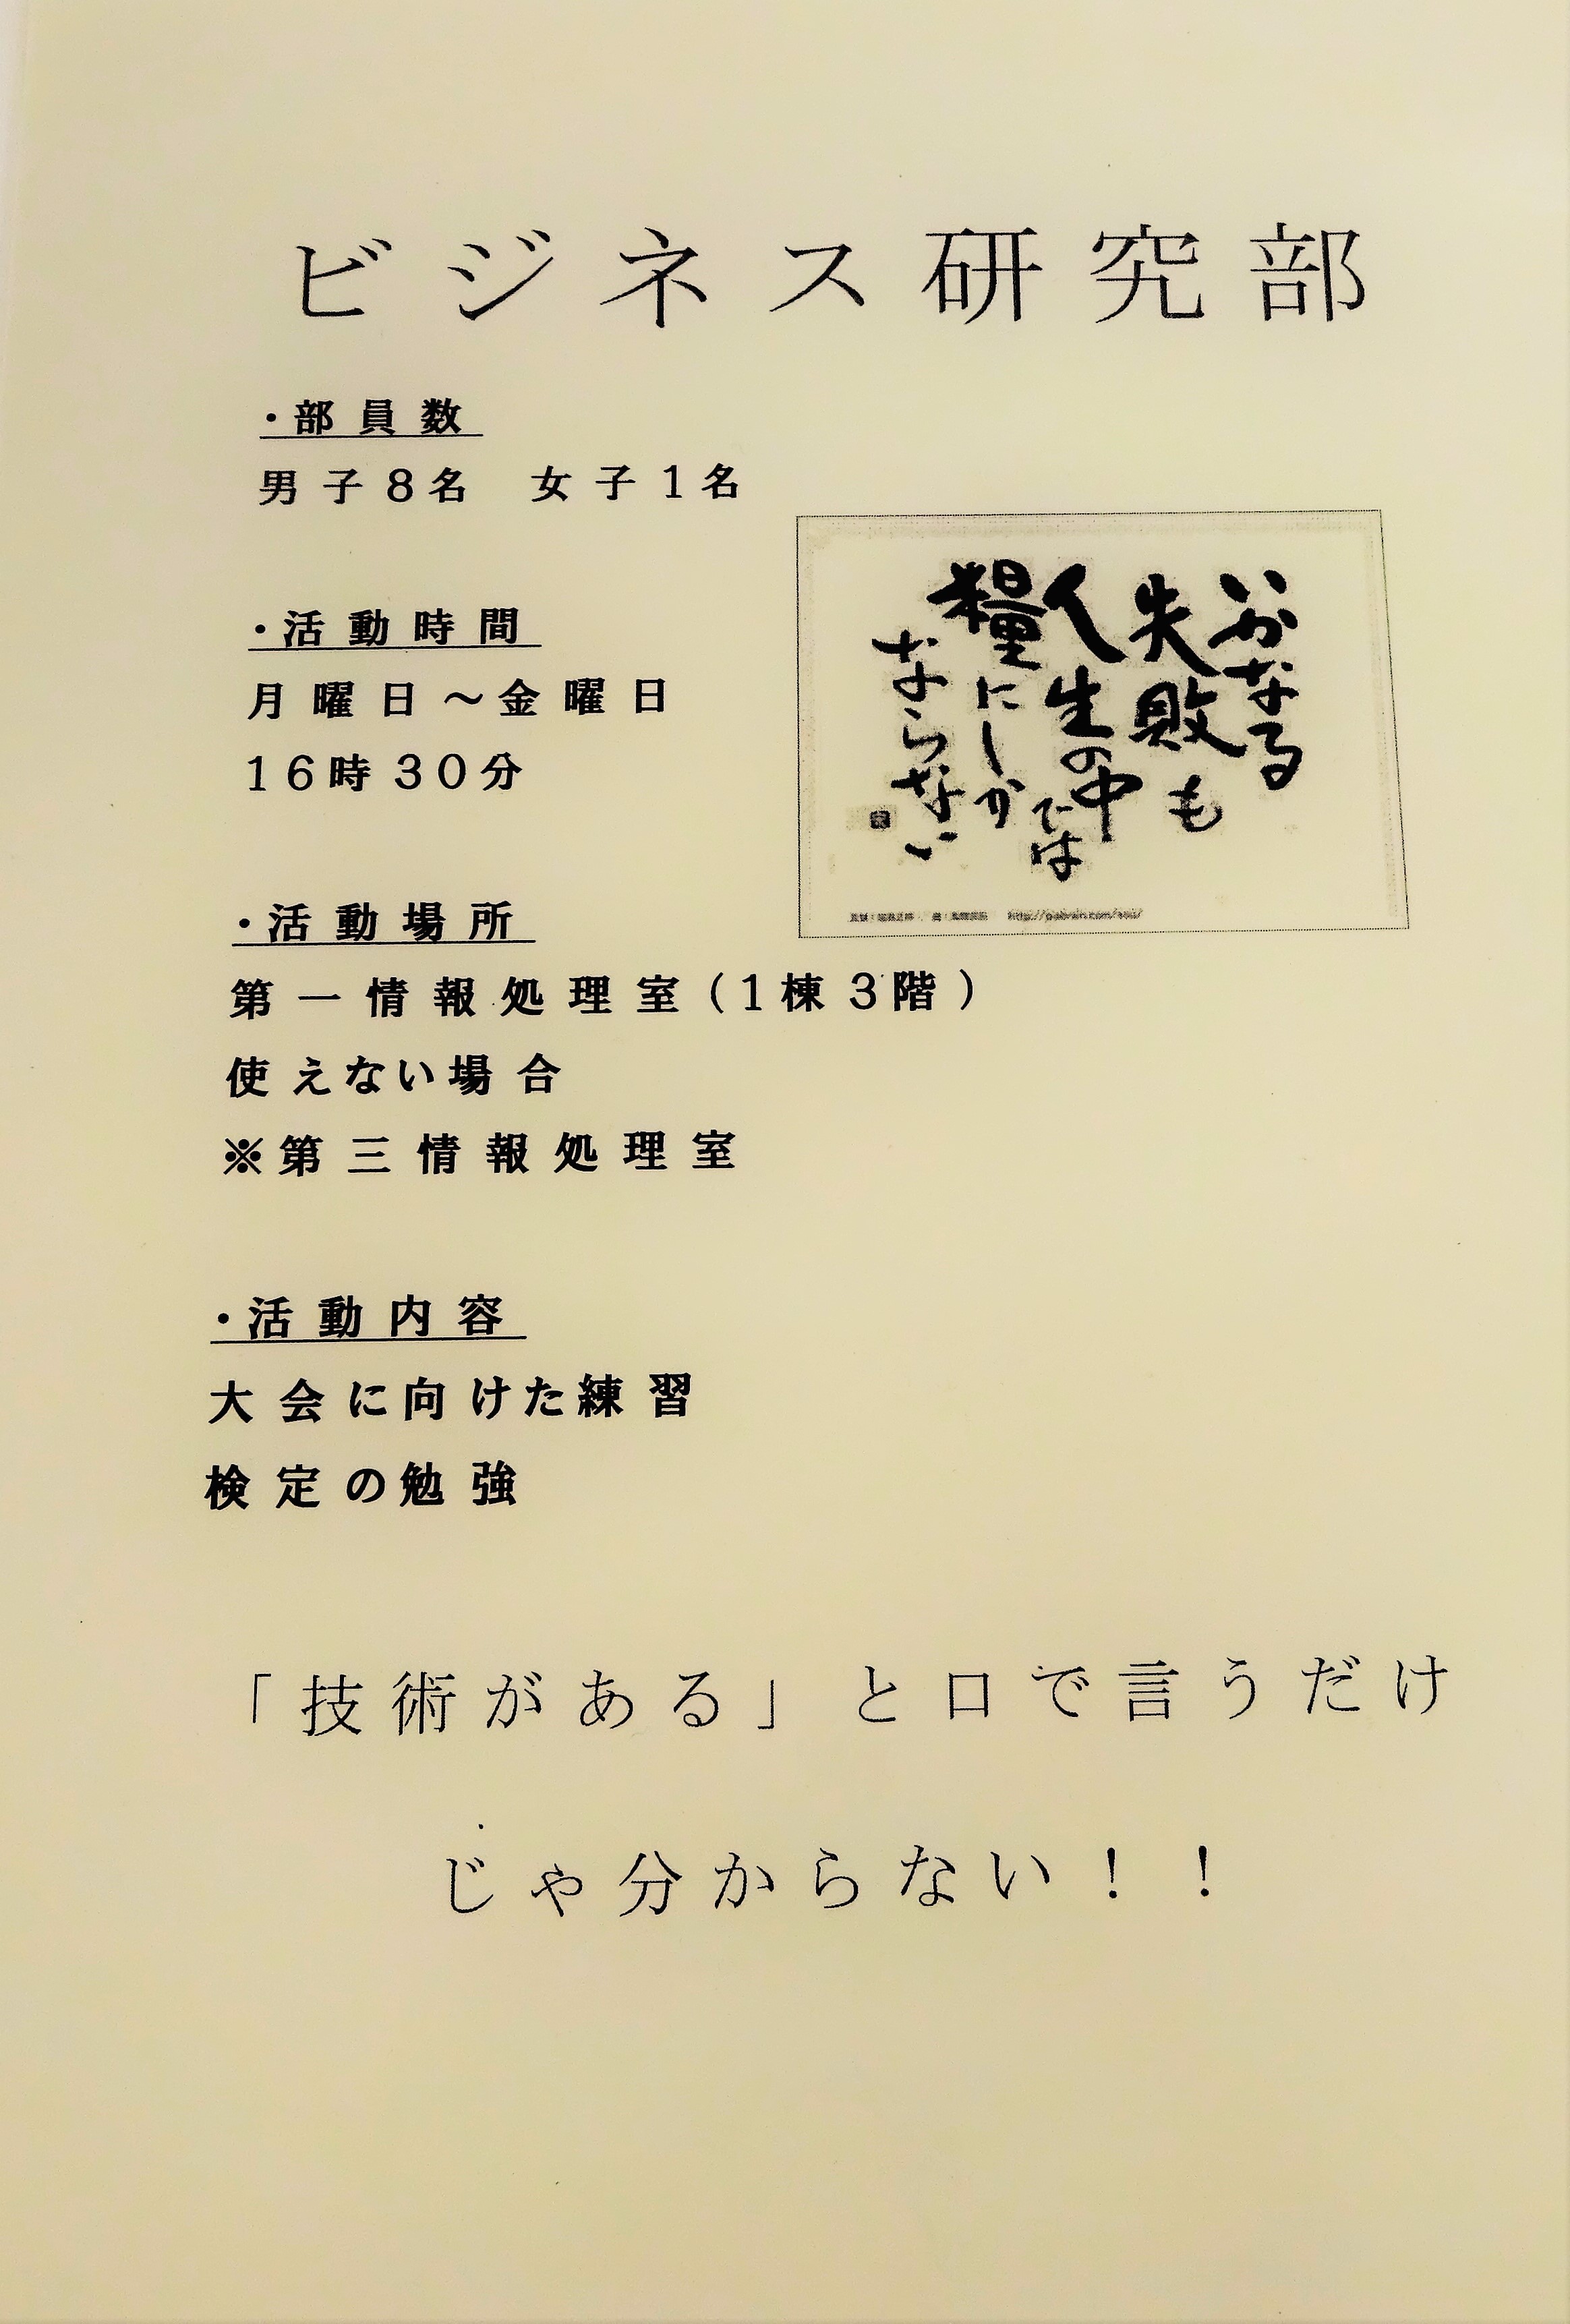 ビジネス研究部
・部員数
男子8名　女子1名
・活動時間
月曜日～金曜日
16時30分
いかなる
失敗も
人生の中
では
糧にしか
ならない
・活動場所
第一情報処理室(1棟3階)
使えない場合
※第三情報処理室
・活動内容
大会に向けた練習
検定の勉強
「技術がある」と口で言うだけ
じゃ分からない！！